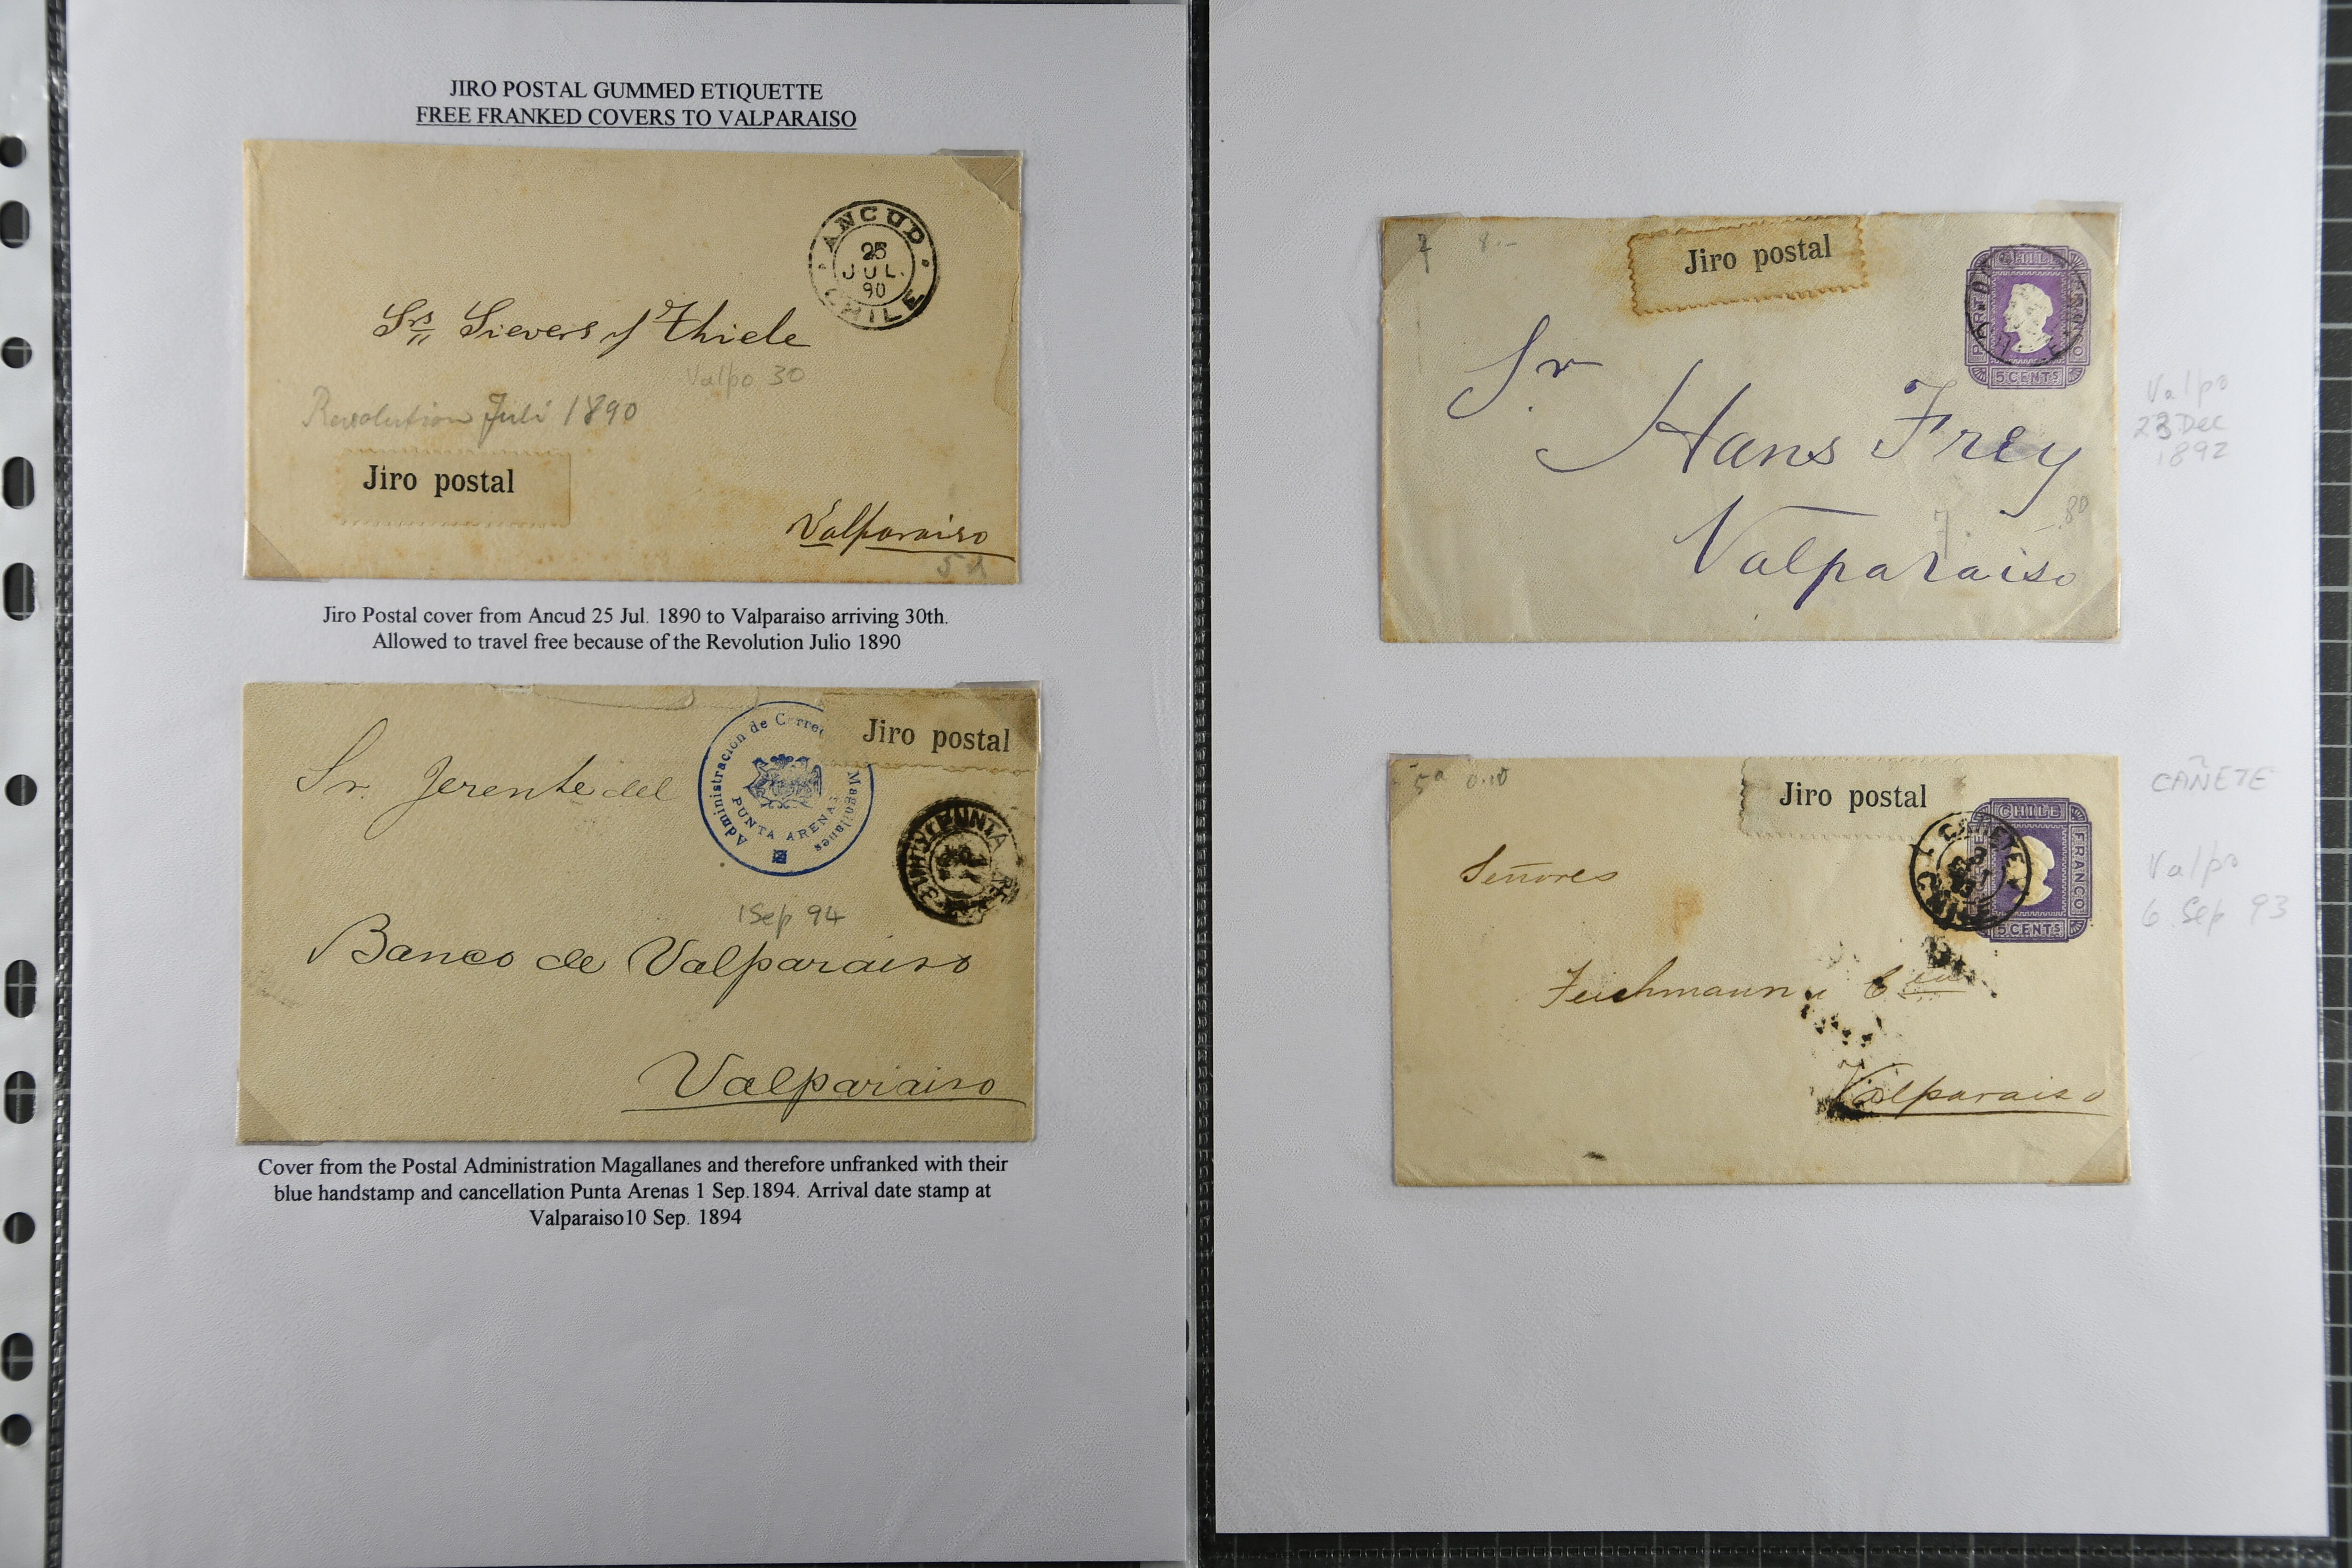 JIRO POSTAL GUMMED ETIQUETTE
FREE FRANKED COVERS TO VALPARAISO
ANCUD
25
JUL.
90
CHILE
Srs Sievers y Thiele
Valpo 30
Revolution Juli 1890
Jiro postal
Valparaiso
Jiro Postal cover from Ancud 25 Jul. 1890 to Valparaiso arriving 30th.
Allowed to travel free because of the Revolution Julio 1890
Jiro postal
Administracion de Correo
Magallanes
PUNTA ARENAS
Sr. Jerente del
PUNTA
1 Sep 94
Banco de Valparaiso
Valparaiso
Cover from the Postal Administration Magallanes and therefore unfranked with their
blue handstamp and cancellation Punta Arenas 1 Sep.1894. Arrival date stamp at
Valparaiso10 Sep. 1894
Jiro postal
CHILE
5 CENTS
Sr
Hans Frey
Valparaiso
Valpo
23 Dec
1892
80
Jiro postal
CHILE
FRANCO
5 CENTS
CAÑETE
Señores
Valparaiso
CAÑETE
Valpo
6 Sep 93